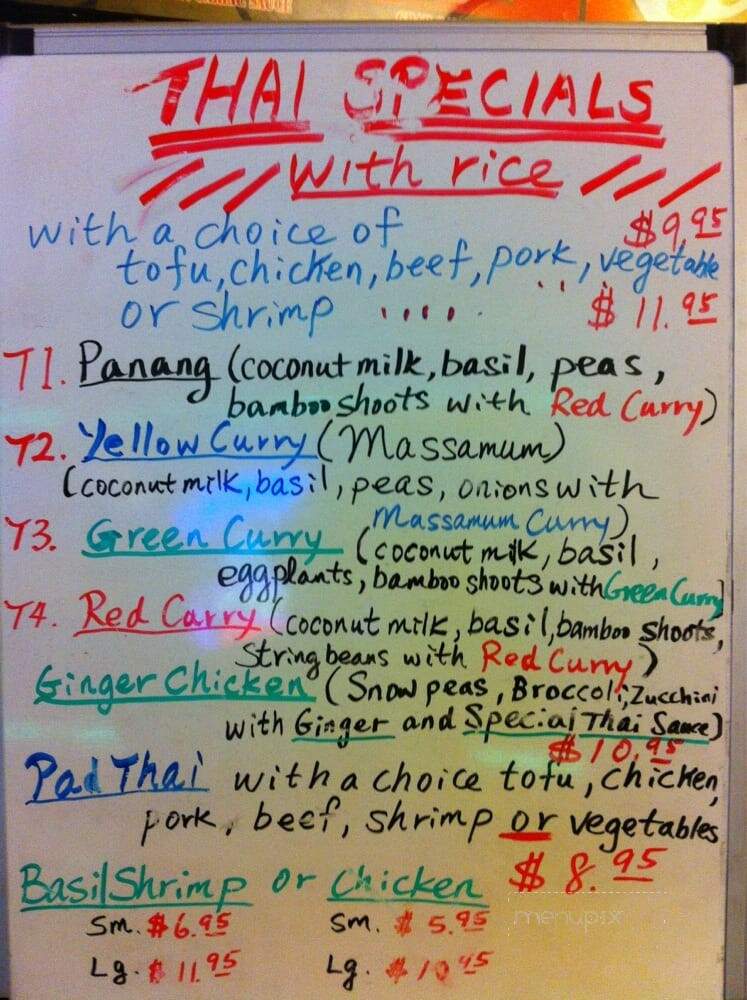 THAI SPECIALS
with rice
with a choice of $9.95
tofu, chicken, beef, pork, vegetable
or shrimp .... $11.95
T1. Panang (coconut milk, basil, peas,
bamboo shoots with Red Curry)
T2. Yellow Curry (Massamum)
(coconut milk, basil, peas, onions with
Massamum Curry)
T3. Green Curry (coconut milk, basil,
eggplants, bamboo shoots with Green Curry)
T4. Red Carry (coconut milk, basil, bamboo shoots,
String beans with Red Curry)
Ginger Chicken (Snow peas, Broccoli, Zucchini
with Ginger and Special Thai Sauce)
$10.95
Pad Thai with a choice tofu, chicken,
pork, beef, shrimp or vegetables
$8.95
Basil Shrimp or Chicken
Sm. $6.95 Sm. $5.95
Lg. $11.95 Lg. $10.95
menupix